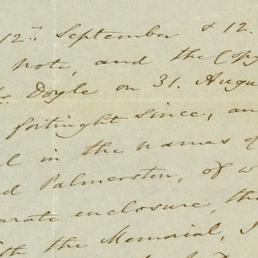 12th September & 12.
note, and the Copy
Doyle on 31. Augu
fortnight since, an
l in the names of
d Palmerston, of w
arate enclosure, the
th the Memorial, I